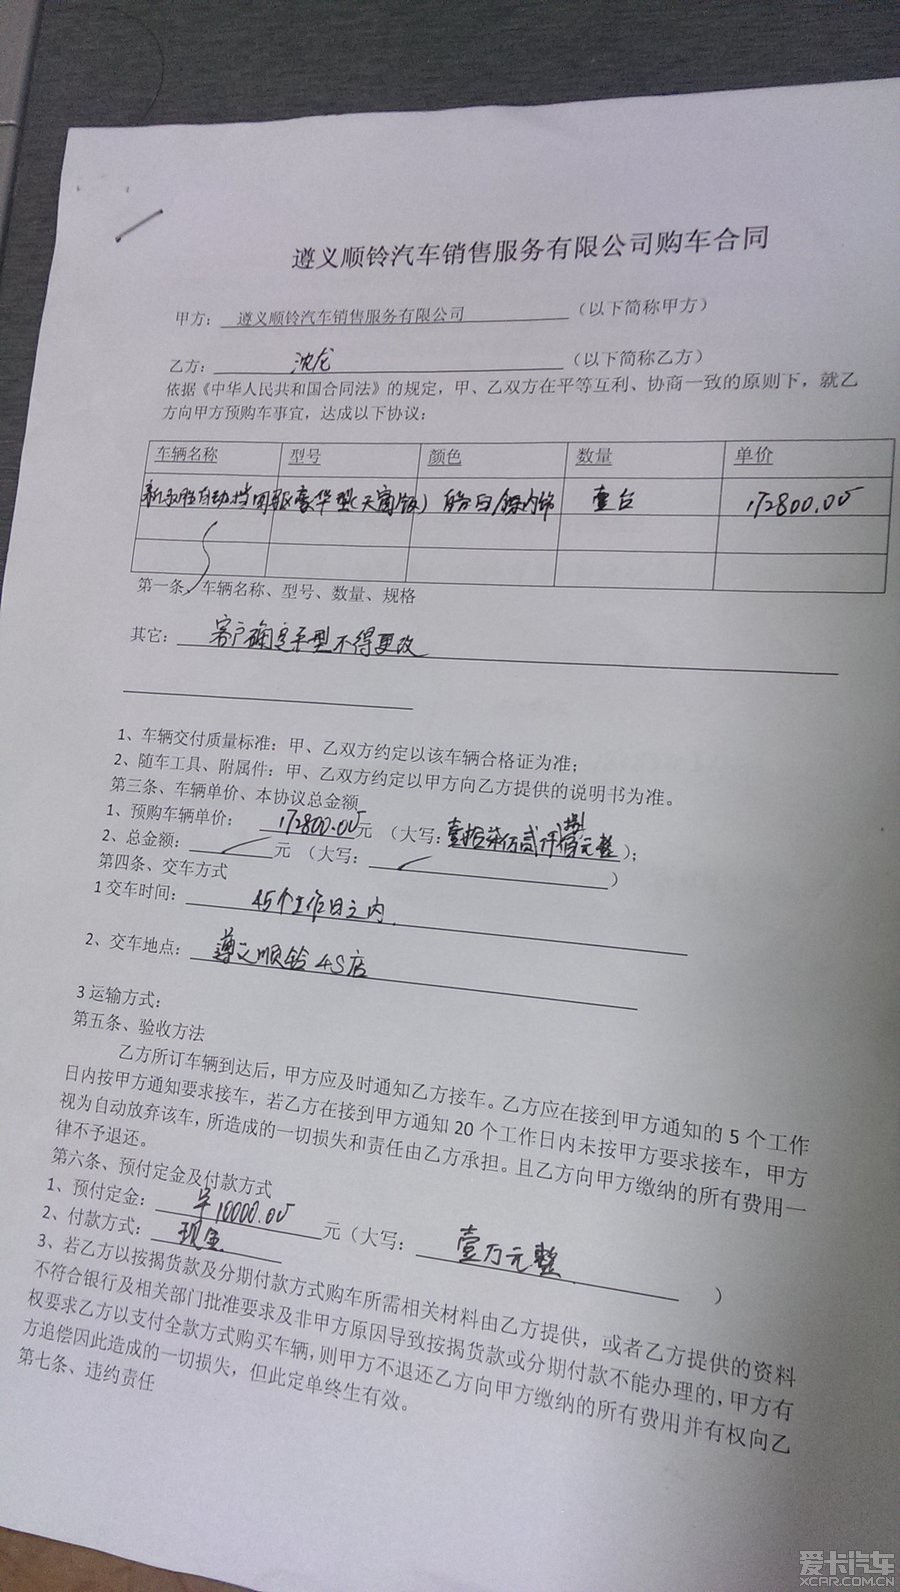 遵义顺铃汽车销售服务有限公司购车合同
甲方：遵义顺铃汽车销售服务有限公司（以下简称甲方）
乙方：沈龙（以下简称乙方）
依据《中华人民共和国合同法》的规定，甲、乙双方在平等互利、协商一致的原则下，就乙
方向甲方预购车事宜，达成以下协议：
车辆名称 型号 颜色 数量 单价
自动挡 豪华型（天窗版） 白/ 内饰 壹台 172800.00
第一条、车辆名称、型号、数量、规格
其它：客户确定车型不得更改
1、车辆交付质量标准：甲、乙双方约定以该车辆合格证为准；
2、随车工具、附属件：甲、乙双方约定以甲方向乙方提供的说明书为准。
第三条、车辆单价、本协议总金额
1、预购车辆单价：172800.00元（大写：壹拾柒万贰仟捌佰元整）；
2、总金额：元（大写：）
第四条、交车方式
1交车时间：45个工作日之内.
2、交车地点：遵义顺铃4S店
3运输方式：
第五条、验收方法
乙方所订车辆到达后，甲方应及时通知乙方接车。乙方应在接到甲方通知的5个工作
日内按甲方通知要求接车，若乙方在接到甲方通知20个工作日内未按甲方要求接车，甲方
视为自动放弃该车，所造成的一切损失和责任由乙方承担。且乙方向甲方缴纳的所有费用一
律不予退还。
第六条、预付定金及付款方式
1、预付定金：¥10000.00元（大写：壹万元整）
2、付款方式：现金
3、若乙方以按揭货款及分期付款方式购车所需相关材料由乙方提供，或者乙方提供的资料
不符合银行及相关部门批准要求及非甲方原因导致按揭货款或分期付款不能办理的，甲方有
权要求乙方以支付全款方式购买车辆，则甲方不退还乙方向甲方缴纳的所有费用并有权向乙
方追偿因此造成的一切损失，但此定单终生有效。
第七条、违约责任
爱卡汽车
XCAR.COM.CN